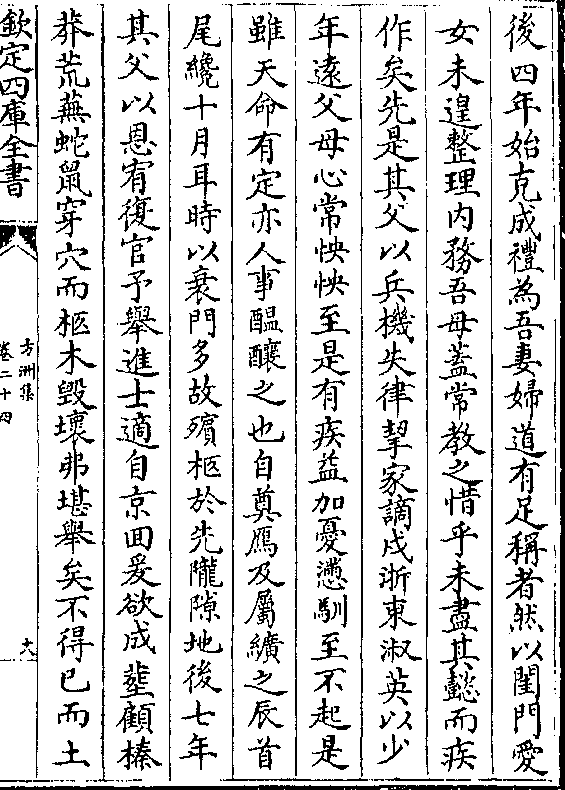 後四年始克成禮為吾妻婦道有足稱者然以閨門愛
女未遑整理内務吾母蓋常教之惜乎未盡其懿而疾
作矣先是其父以兵機失律挈家謫戍浙東淑英以少
年遠父母心常怏怏至是有疾益加憂懣馴至不起是
雖天命有定亦人事醖釀之也自奠鴈及屬纊之辰首
尾纔十月耳時以衰門多故殯柩於先隴隙地後七年
其父以恩宥復官予舉進士適自京囬爰欲成塟顧榛
莽荒蕪蛇鼠穿穴而柩木毀壞弗堪舉矣不得已而土
欽定四庫全書
方洲集
卷二十四
大